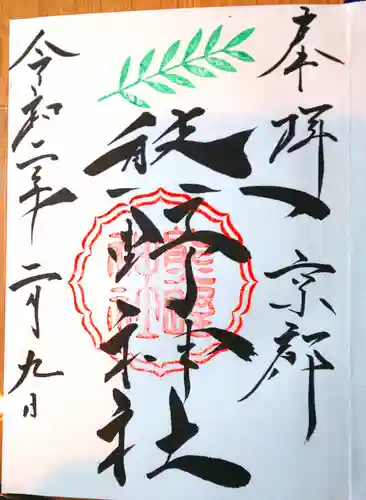 奉拝 京都
熊野神社
令和二年 二月九日